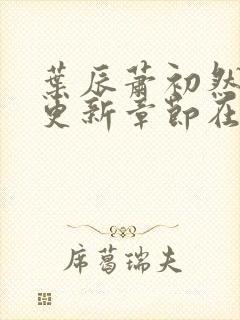 葉辰蕭初然
更新章節在
席葛瑞夫